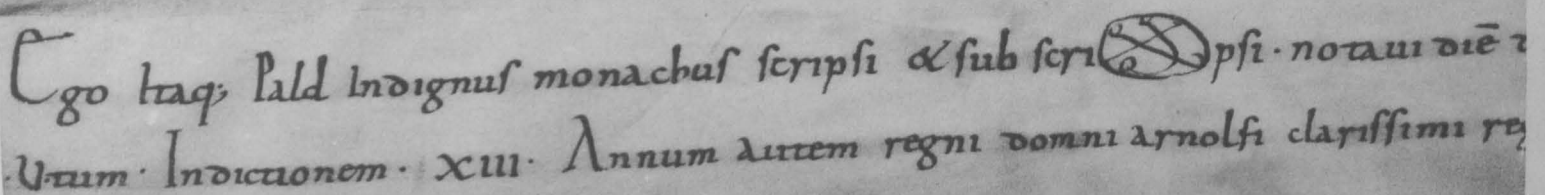 Ego Itaq; Pald Indignus monachus scripsi & sub scripsi · notaui diē
·V·tum· Indictionem· XIII· Annum autem regni domni arnolfi clarissimi